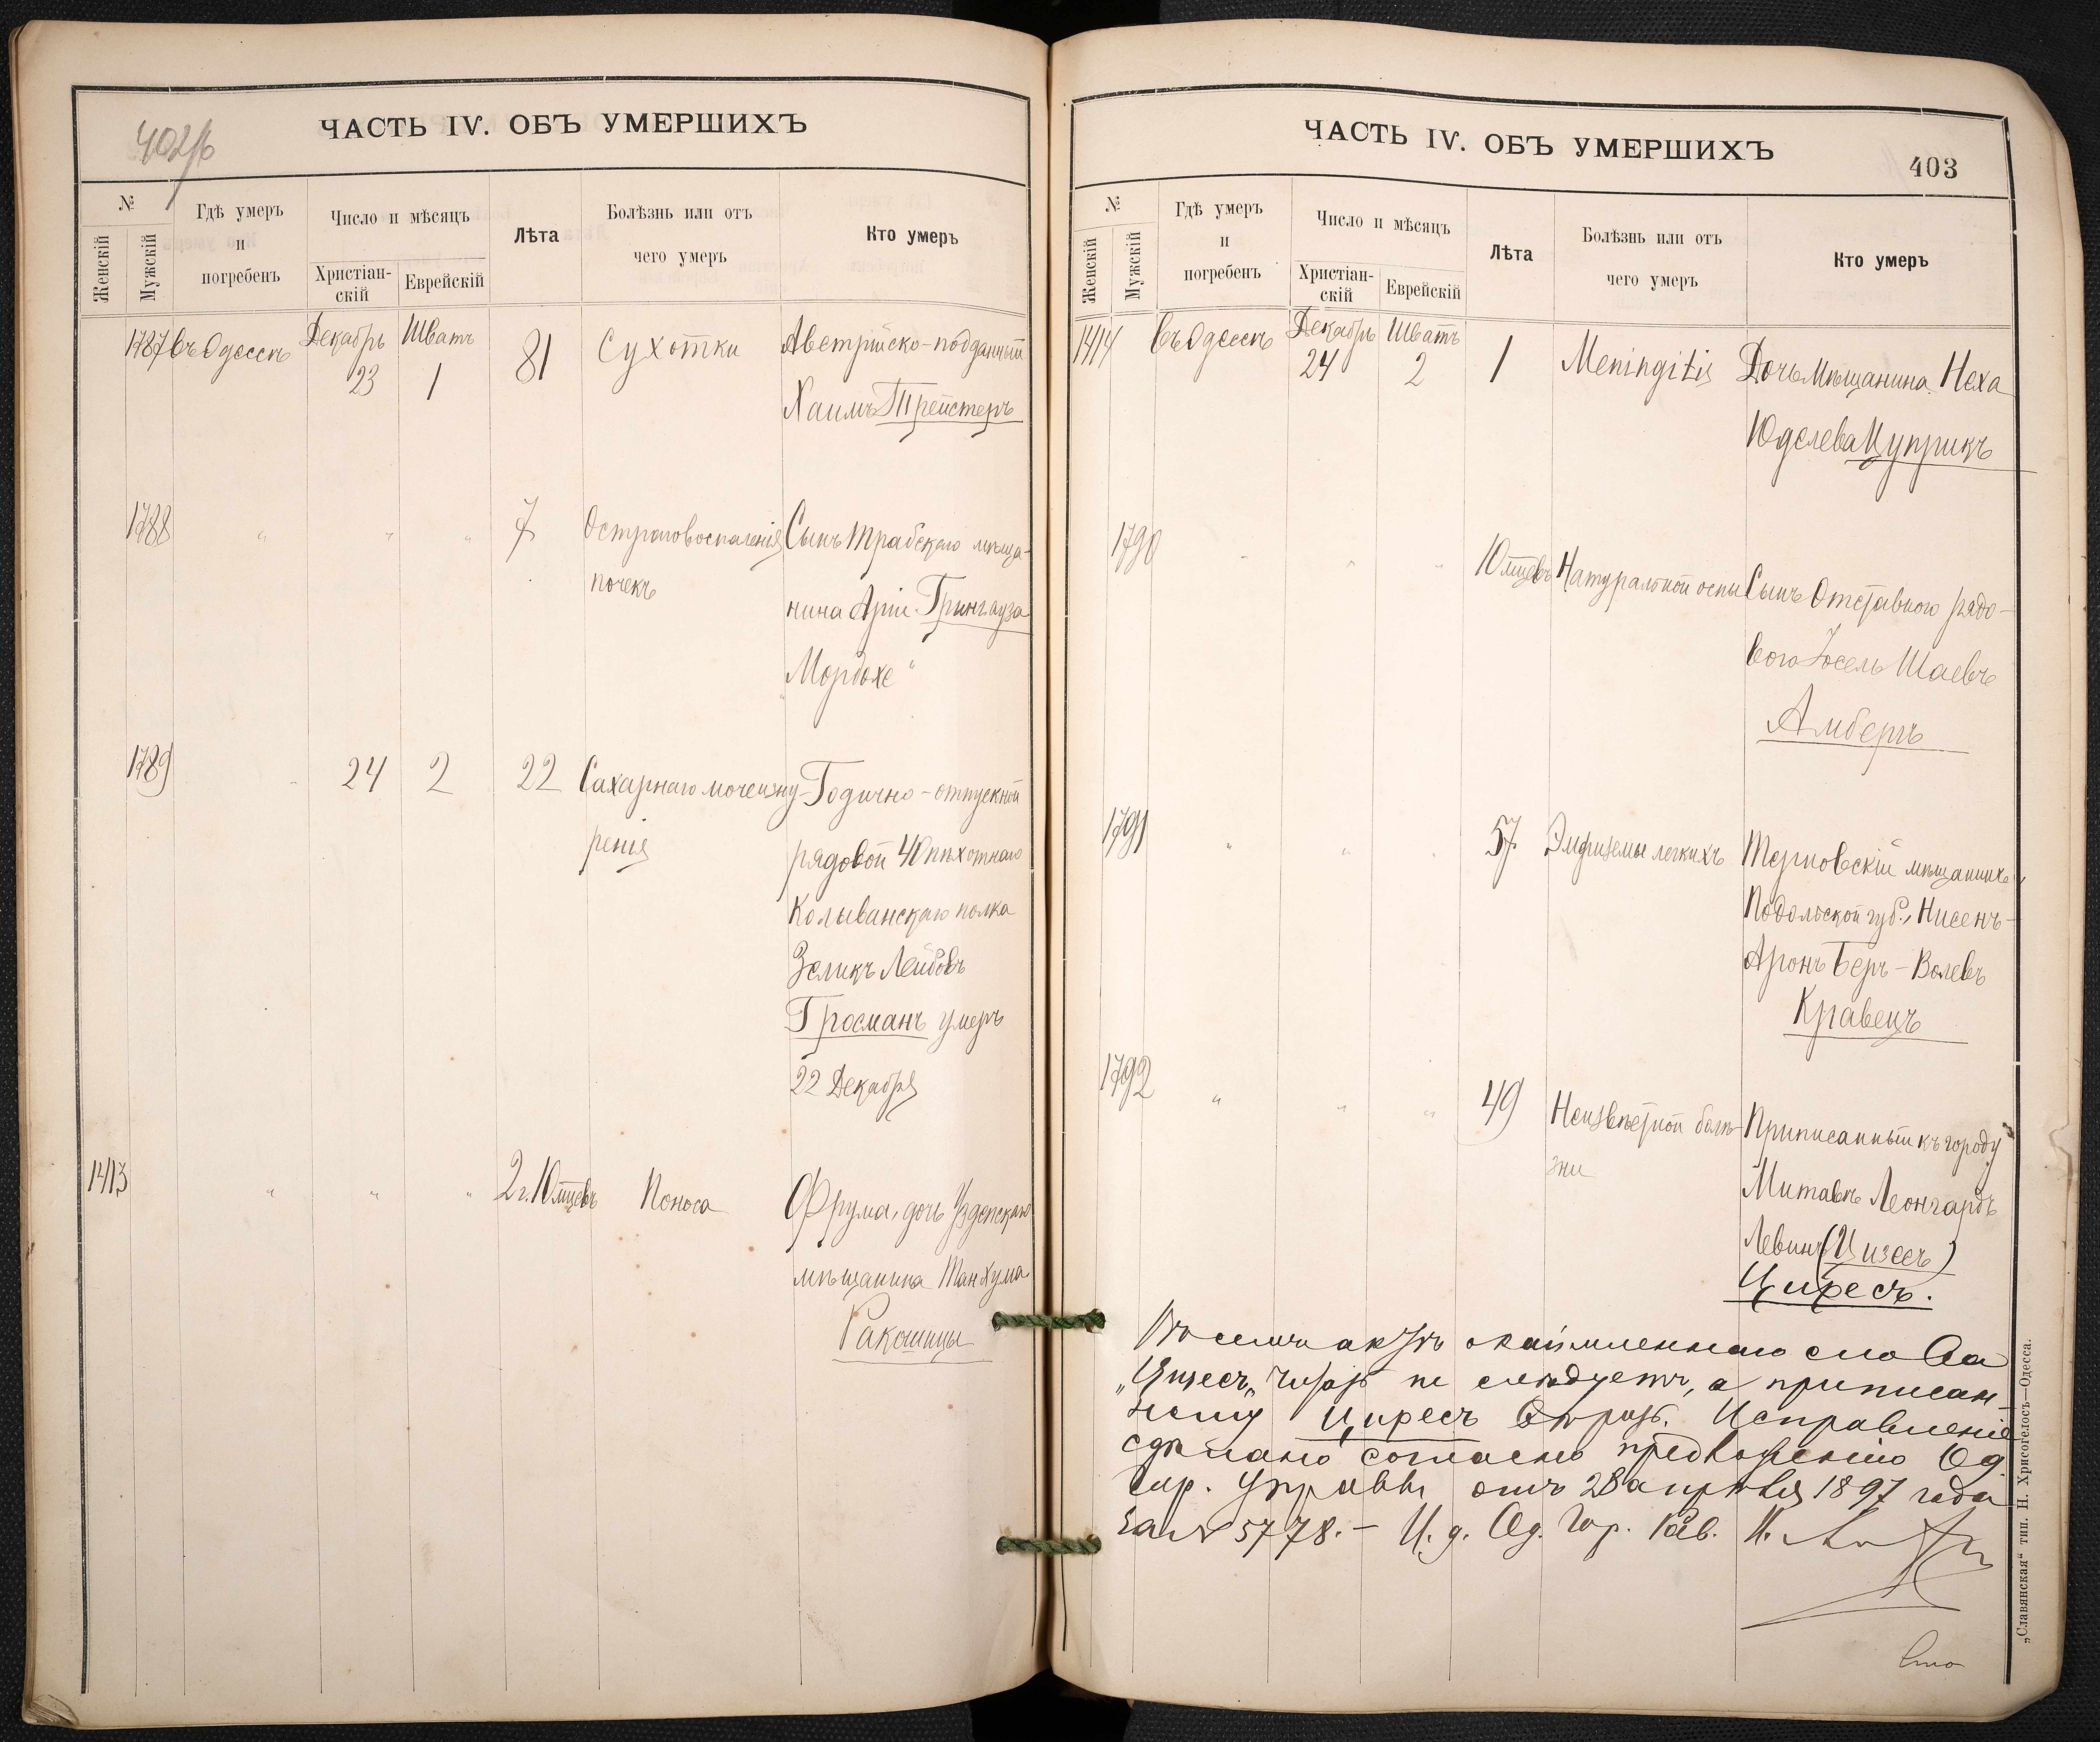 402/б
ЧАСТЬ IV. ОБЪ УМЕРШИХЪ
№
Женскій
Мужскій
Гдѣ умеръ
и
погребенъ
Число и мѣсяцъ
Христіан-
скій
Еврейскій
Лѣта
Болѣзнь или отъ
чего умеръ
Кто умеръ
1787 Въ Одессѣ Декабрь 23 Шватъ 1 81 Сухотки Австрійско-подданный
Хаимъ Трейстеръ
1788 " " " 7 Остраго воспаленія Сынъ Трабскаго мѣща-
почекъ нина Аріи Грингауза
"Мордохе"
1789 " 24 2 22 Сахарнаго мочеизну- Годично-отпускной
ренія рядовой 40 пѣхотнаго
Колыванскаго полка
Зеликъ Лейбовъ
Гросманъ умеръ
22 Декабря
1413 " " " 2 г. 10 мѣсцевъ Поноса Фрума, дочь Узденскаго
мѣщанина Танхума
Ракошицы
ЧАСТЬ IV. ОБЪ УМЕРШИХЪ
403
№
Женскій
Мужскій
Гдѣ умеръ
и
погребенъ
Число и мѣсяцъ
Христіан-
скій
Еврейскій
Лѣта
Болѣзнь или отъ
чего умеръ
Кто умеръ
1414 Въ Одессѣ Декабрь 24 Шватъ 2 1 Meningitis Дочь Мѣщанина Неха
Юделева Цуприкъ
1790 " " " 10 мѣсцевъ Натуральной оспы Сынъ Отставного рядо-
вого Іосель Шаевъ
Амбергъ
1791 " " " 57 Эмфиземы легкихъ Терновскій мѣщанинъ,
Подольской губ., Нисенъ-
Аронъ Беръ-Волевъ
Кравецъ
1792 " " " 49 Неизвѣстной болѣ- Приписанный къ городу
зни Митавѣ Леонгардъ
Левинъ (Цизесъ)
Циресъ.
Въ семъ актѣ окаймленнаго слова
"Цизесъ" читать не слѣдуетъ, а приписан-
ному Циресъ вѣрить. Исправленіе
сдѣлано согласно предложенію Од.
Гор. Управы отъ 28 апрѣля 1897 года
за № 5778. – И. д. Од. Гор. Рав.
„Славянская“ тип. Н. Хрисогелосъ—Одесса.